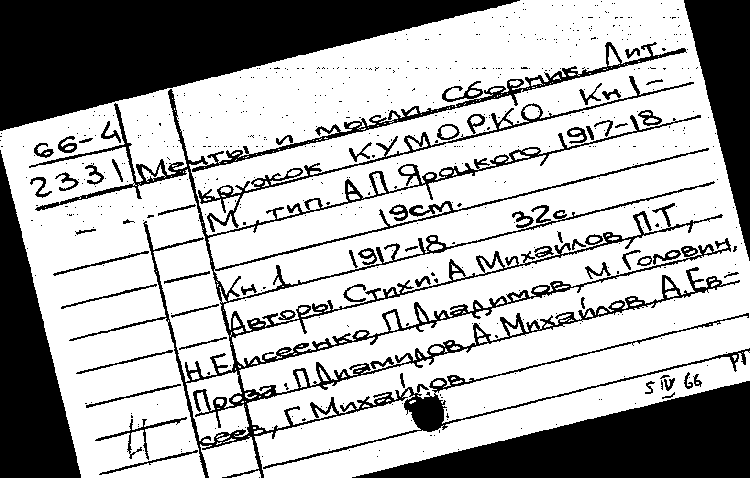 66-4
2331
Мечты и мысли. Сборник. Лит.
кружок К.У.М.О.Р.К.О. Кн 1-
М., тип. А.П.Яроцкого, 1917-18.
19см.
Кн. 1. 1917-18. 32с.
Авторы. Стихи: А. Михайлов, П.Т.,
Н.Елисеенко, П.Диадимов, М. Головин,
Проза: П.Диамидов, А. Михайлов, А.Ев-
сеев, Г. Михайлов.
5 IV 66